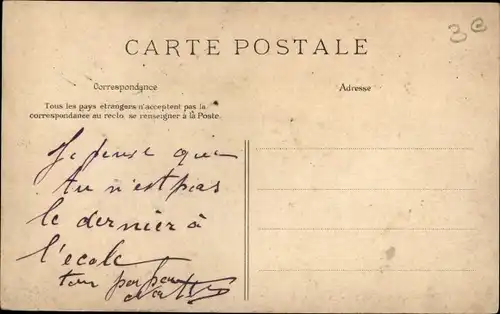 3e
CARTE POSTALE
Correspondance
Adresse
Tous les pays étrangers n'acceptent pas la
correspondance au recto, se renseigner à la Poste.
Je pense que
tu n'est pas
le dernier à
l'école
ton papa